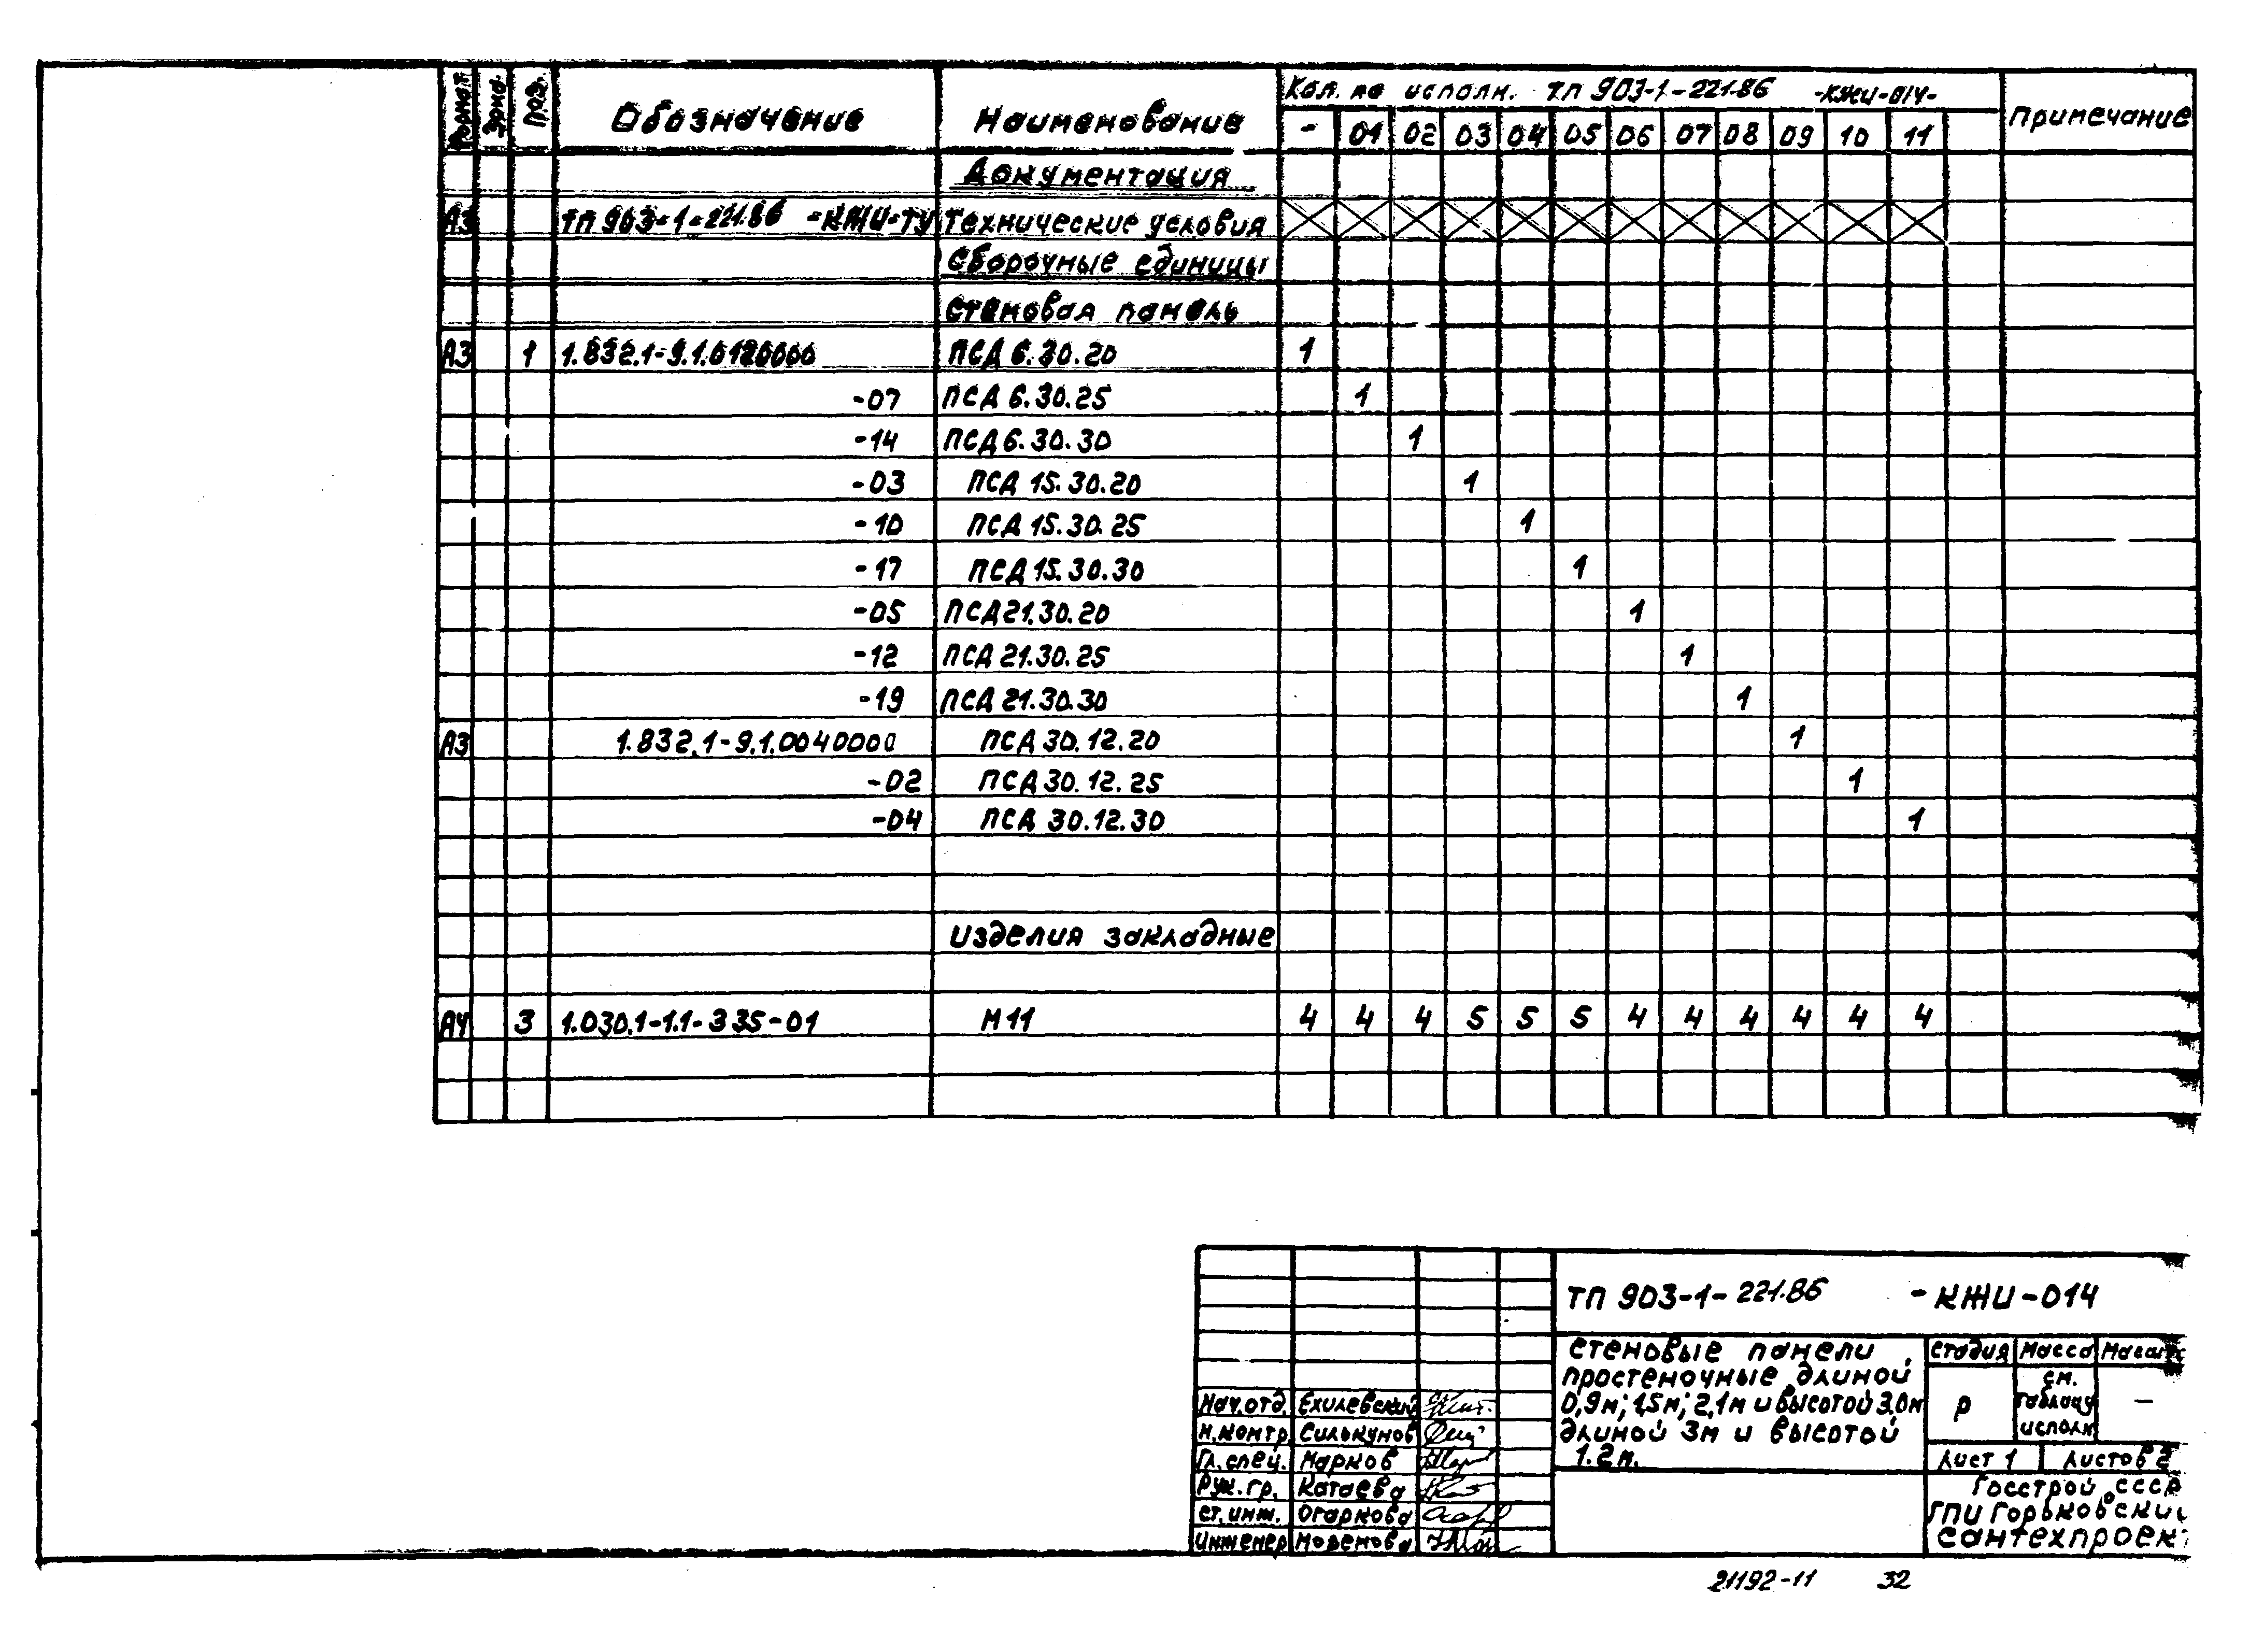 Формат Зона Поз. Обозначение Наименование Кол. по исполн. ТП 903-1-221.86 -КЖИ-014- Примечание
- 01 02 03 04 05 06 07 08 09 10 11
Документация
А3 ТП 903-1-221.86 -КЖИ-ТУ Технические условия
Сборочные единицы
Стеновая панель
А3 1 1.832.1-9.1.0120000 ПСД 6.30.20 1
-07 ПСД 6.30.25 1
-14 ПСД 6.30.30 1
-03 ПСД 15.30.20 1
-10 ПСД 15.30.25 1
-17 ПСД 15.30.30 1
-05 ПСД 21.30.20 1
-12 ПСД 21.30.25 1
-19 ПСД 21.30.30 1
А3 1.832.1-9.1.0040000 ПСД 30.12.20 1
-02 ПСД 30.12.25 1
-04 ПСД 30.12.30 1
Изделия закладные
А4 3 1.030.1-1.1-335-01 М11 4 4 4 5 5 5 4 4 4 4 4 4
ТП 903-1-221.86 -КЖИ-014
Стеновые панели
простеночные длиной
0,9м; 1,5м; 2,1м и высотой 3.0м
длиной 3м и высотой
1.2м.
Стадия Масса
Р см. таблицу исполн. —
Лист 1 Листов 2
Госстрой СССР
ГПИ Горьковский
Сантехпроек
Нач.отд. Ехилевский
Н.контр. Силькунов
Гл.спец. Марков
Рук.гр. Катаева
Ст.инж. Огаркова
Инженер Моренова
21192-11 32